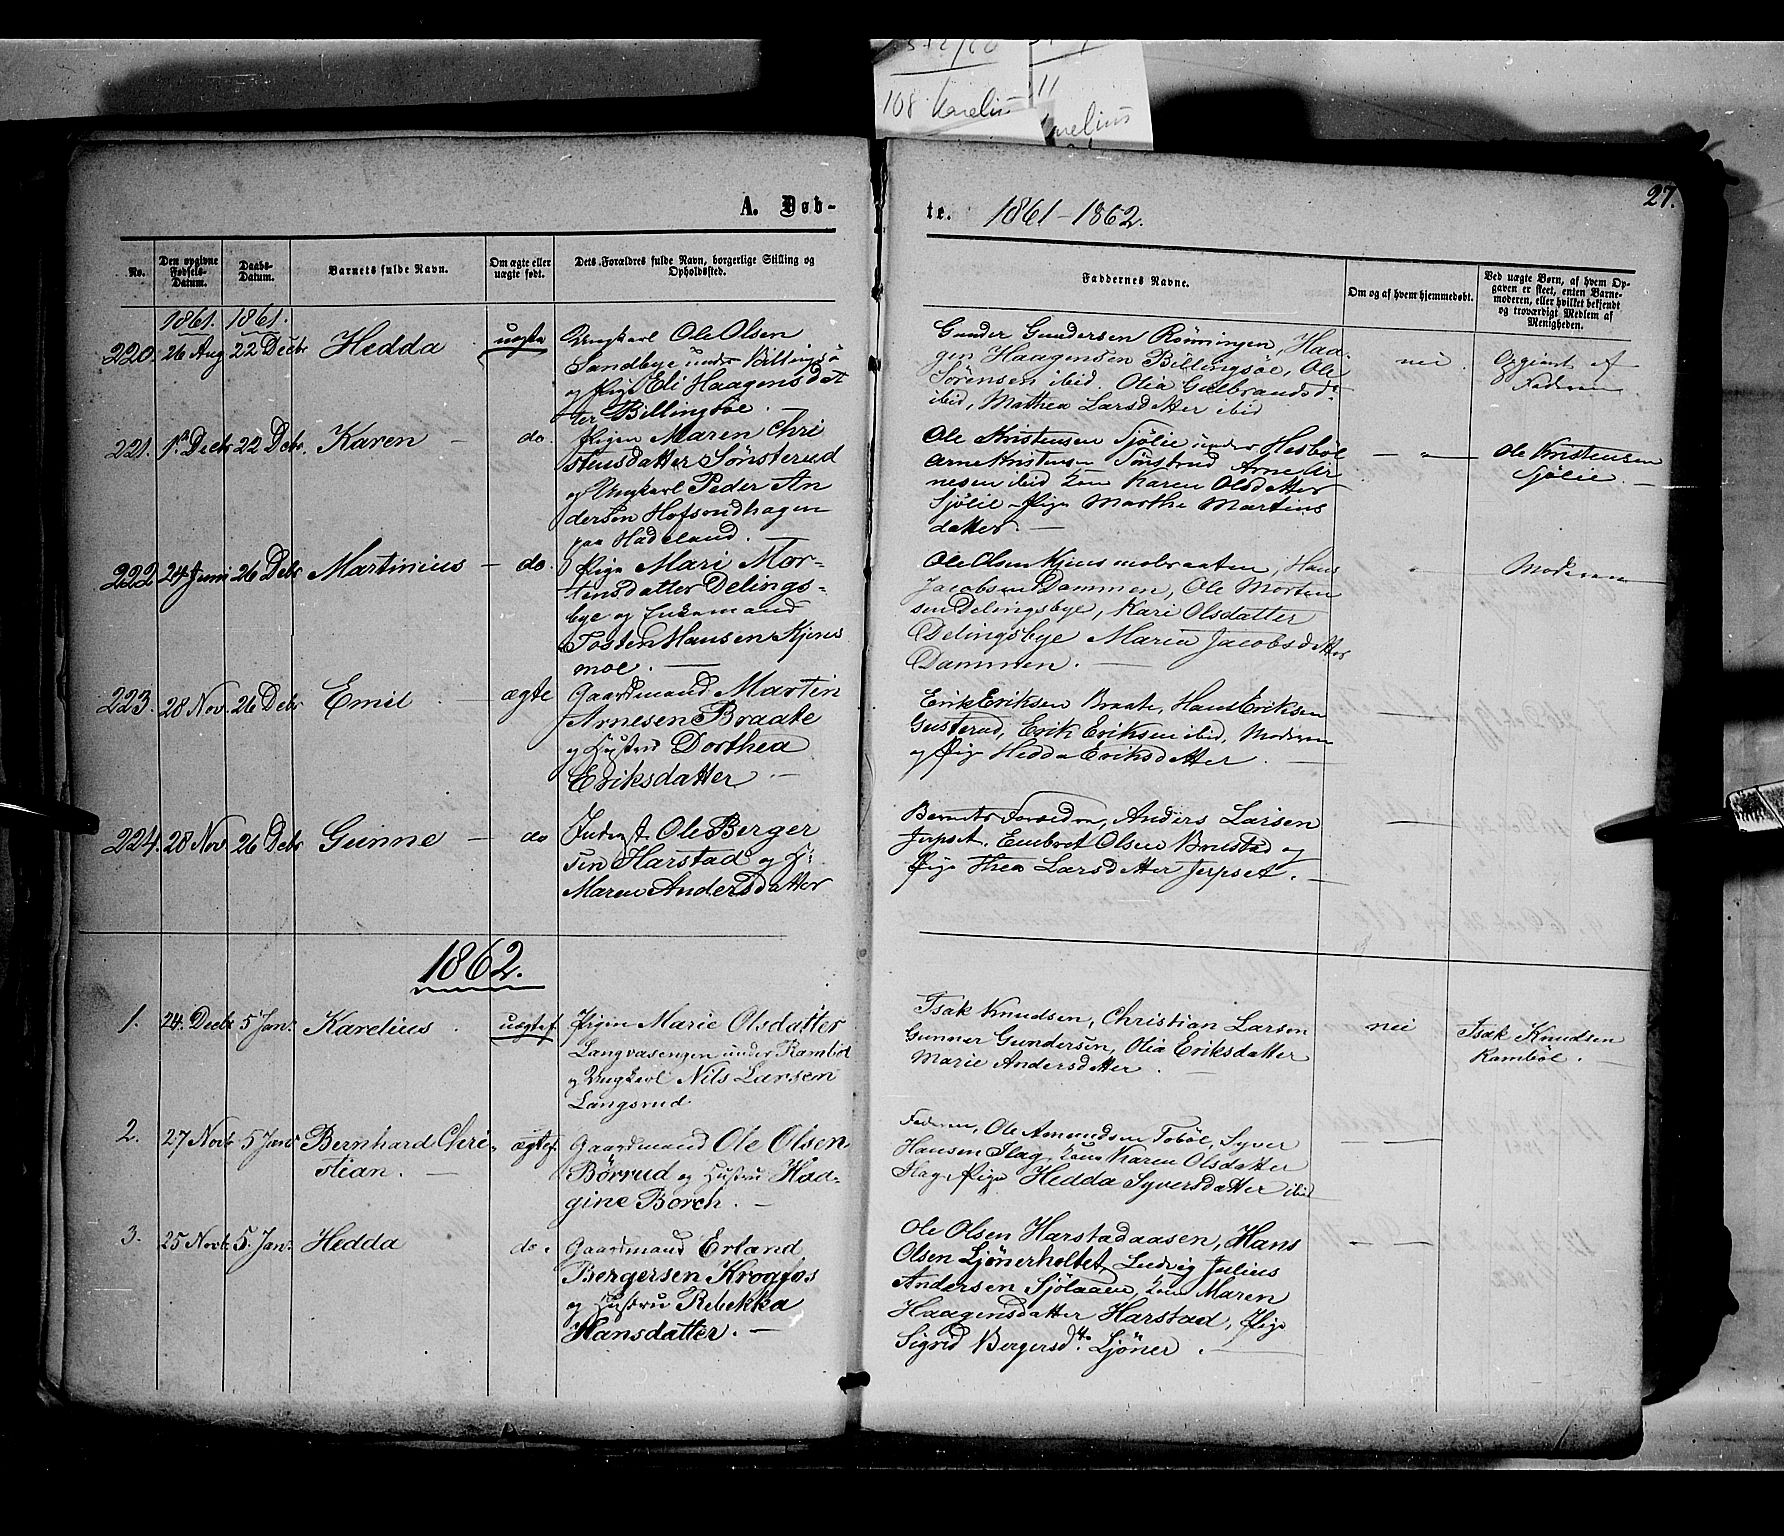 108 Karelius
11
A. Døb-
te. 1861-1862.
27.
No.
Den opgivne Fødsels-Datum.
Daabs-Datum.
Barnets fulde Navn.
Om ægte eller uægte født.
Dets Forældres fulde Navn, borgerlige Stilling og Opholdssted.
Faddernes Navne.
Om og af hvem hjemmedøbt.
Ved uægte Børn, af hvem Op-
gaven er skeet, enten Barne-
moderen, eller hvilket bekjendt
og troværdigt Medlem af
Menigheden.
1861. 1861.
220. 26 Aug 22 Decbr Hedda uægte
Ungkarl Ole Olsen
Sandbye under Billingsø
og Pige Eli Haagensdat
ter Billingsøe.
Gunder Gundersen Rönningen, Haa-
gen Haagensen Billingsöe, Ole
Sörensen ibid. Olia Gulbrandsd.
ibid, Mathea Larsdatter ibid
nei
Opgivet af
Faderen
221. 1ste Decbr 22 Debr. Karen do.
Pigen Maren Chri
stensdatter Sønsterud
og Ungkarl Peder An
dersen Hofsendhagen
paa Hadeland.
Ole Kristensen Sjölie under Hesböl
Arne Kristensen Sönsterud Arne Ar
nesen ibid Kone Karen Olsdatter
Sjölie - Pige Marthe Martins
datter.
Ole Kristensen
Sjölie.
222 24 Juni 26 Debr Martinius do.
Pige Mari Mor-
tensdatter Delings-
bye og Enkemand
Tosten Hansen Kjens
moe.
Ole Olsen Kjensmobraaten, Hans
Jacobsen Dammen, Ole Morten
sen Delingsbye, Kari Olsdatter
Delingsbye Maria Jacobsdatter
Dammen.
Moderen
223. 28 Nov. 26 Debr Emil ægte
Gaardmand Martin
Arnesen Braate
og Hustru Dorthea
Eriksdatter.
Erik Eriksen Braate, Hans Eriksen
Gusterud, Erik Eriksen ibid, Moderen
og Pige Hedda Eriksdatter.
224. 28 Nov 26 Debr Gunne do
Inderst. Ole Berger
sen Harstad og H:
Maren Andersdatter
Barnets Forældre, Anders Larsen
Jerpset. Embret Olsen Brustad og
Pige Thea Larsdatter Jerpset.
1862.
1. 24. Decbr 5 Jan: Karelius uægtef.
Pigen Marie Olsdatter
Langvasengen under Ramböl
og Ungkarl Nils Larsen
Langsrud.
Isak Knudsen, Christian Larsen
Gunner Gundersen, Olia Eriksdatter
Marie Andersdatter.
nei
Isak Knudsen
Ramböl.
2. 27 Novbr 5 Jan: Bernhard Chri-
stian. ægtef.
Gaardmand Ole Olsen
Börrud og Hustru Haa-
gine Borch.
Faderen, Ole Amundsen Toböl, Syver
Hansen Flag, Kone Karen Olsdatter
Flag, Pige Hedda Syversdatter ibid
3. 25 Novbr 5. Jan: Hedda do.
Gaardmand Erland
Bergersen Krogfos
og Hustru Rebekka
Hansdatter.
Ole Olsen Harstadaasen, Hans
Olsen Ljönerholtet, Ludvig Julius
Andersen Sjölaaen, Kone Maren
Haagensdatter Harstad, Pige
Sigrid Bergersd.tr Ljöner.